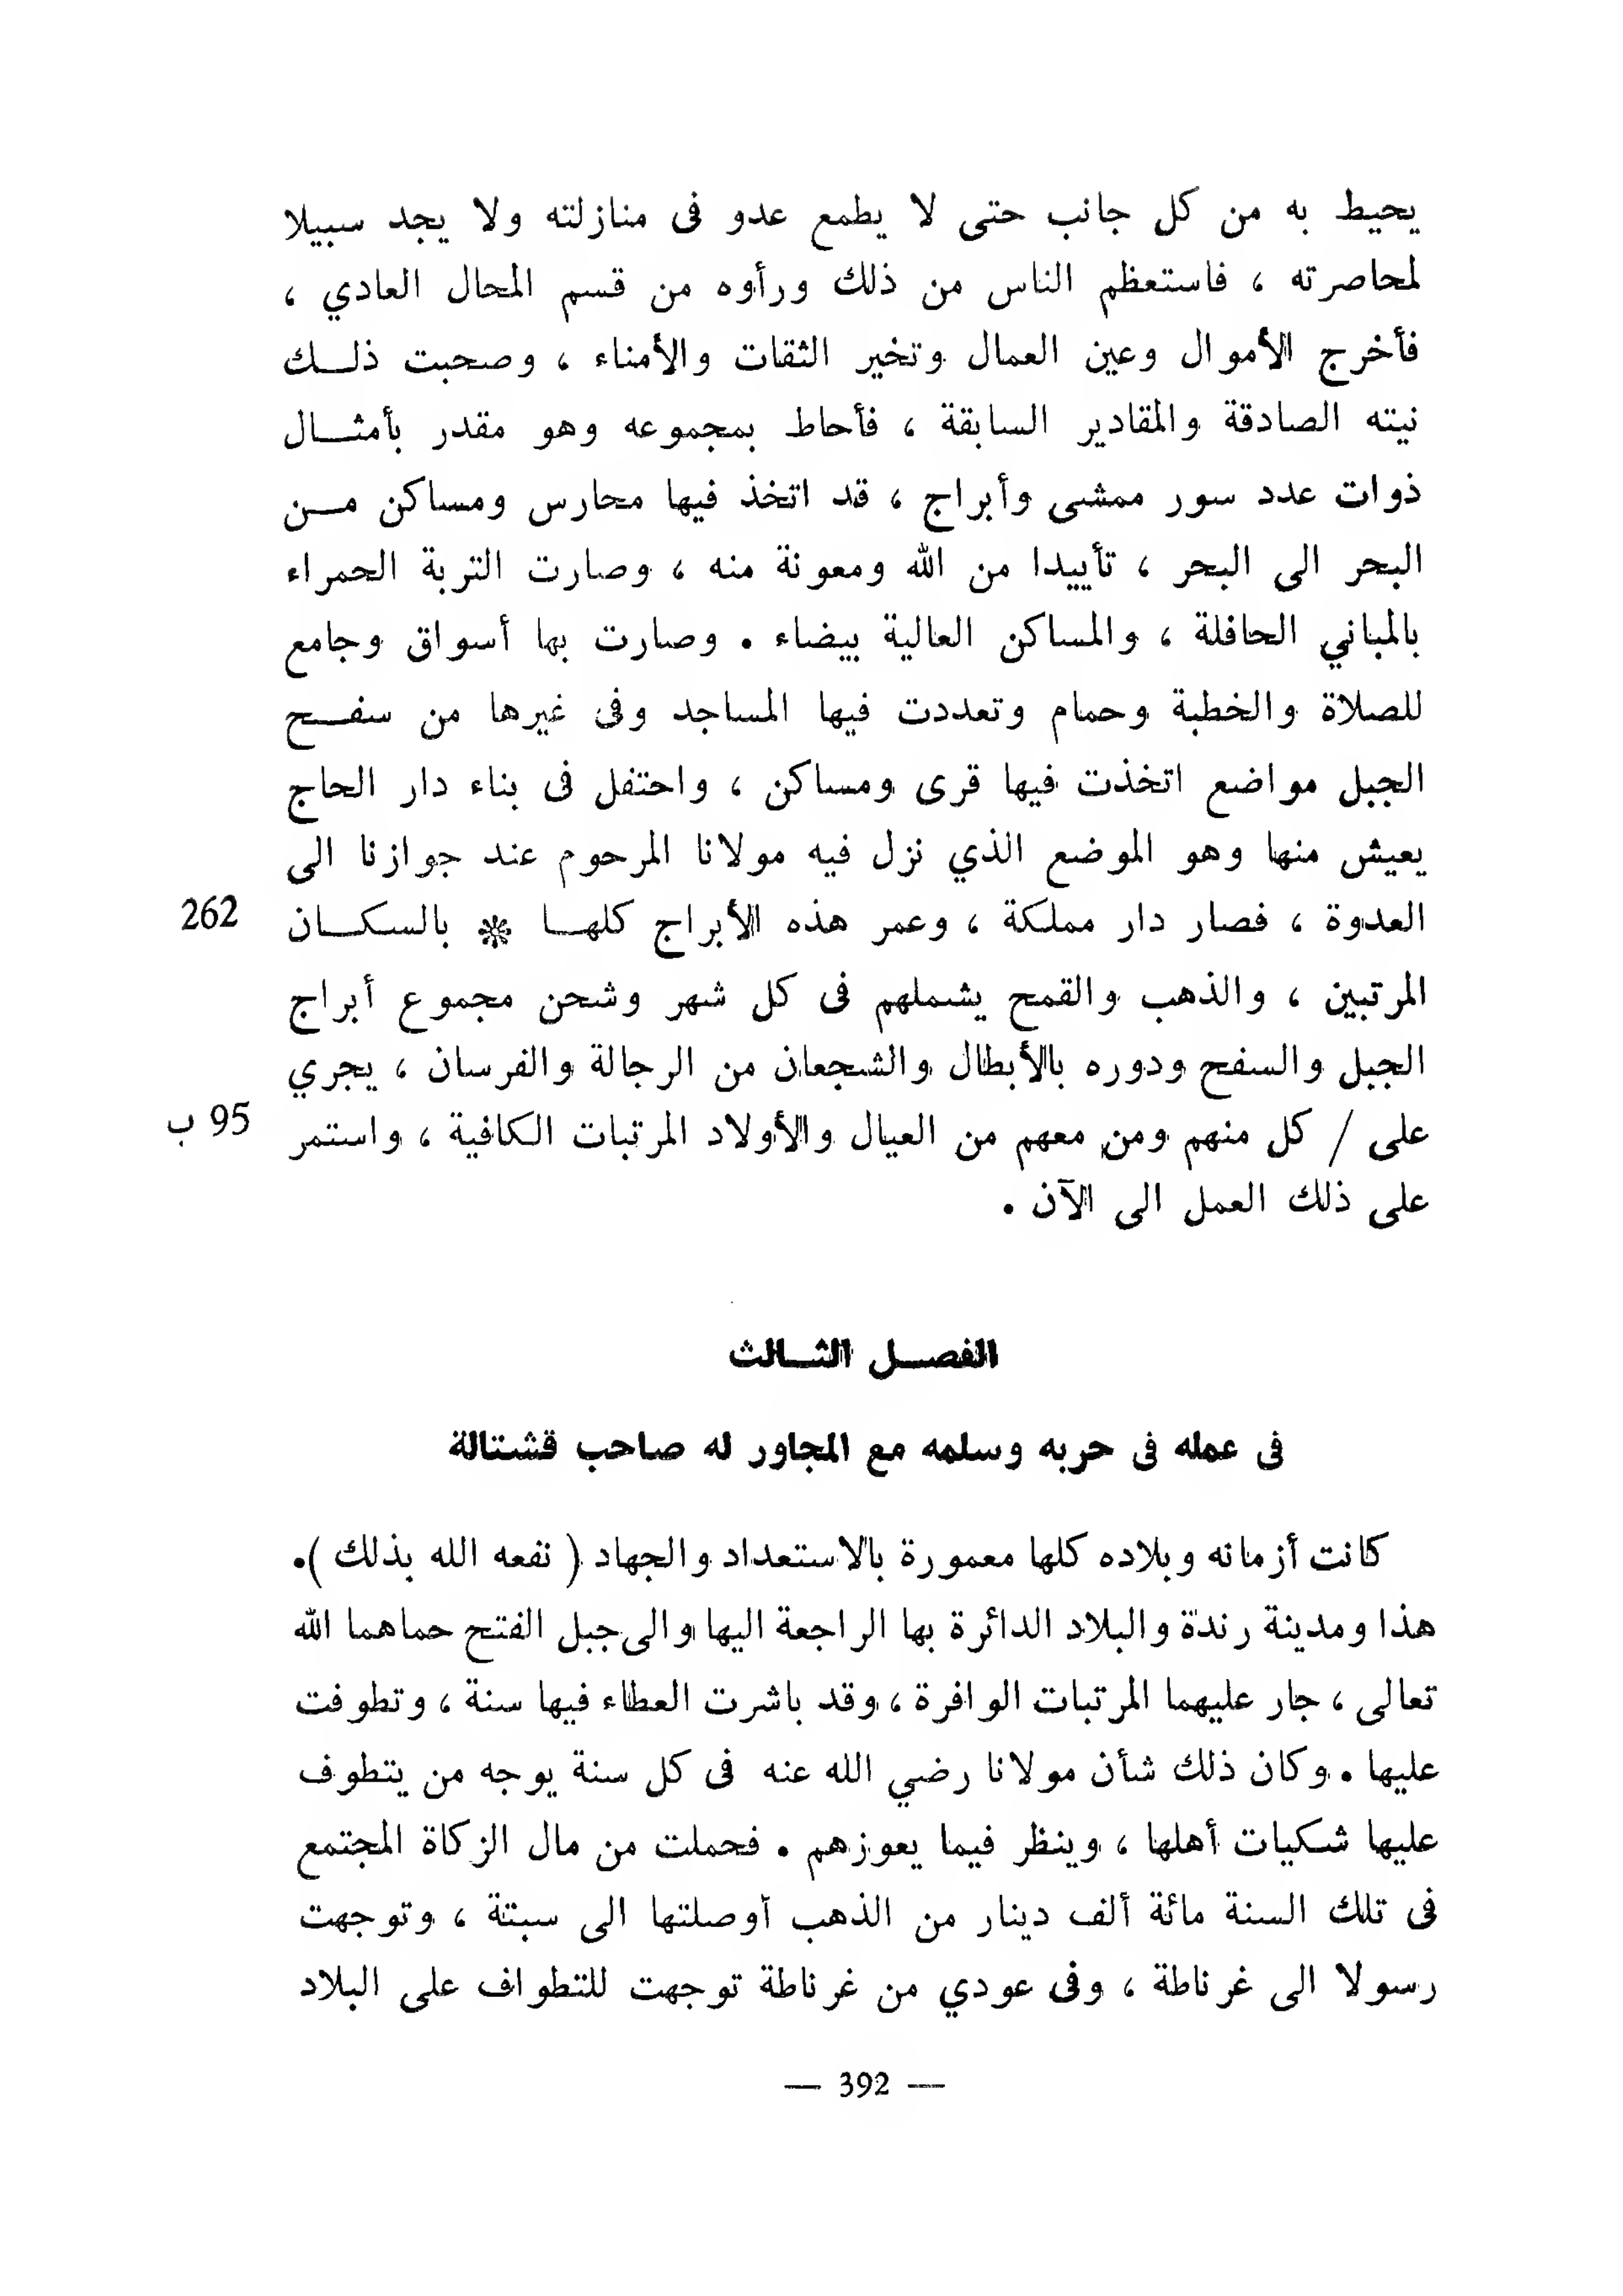 يحيط به من كل جانب حتى لا يطمع عدو فى منازلته ولا يجد سبيلا
لمحاصرته ، فاستعظم الناس من ذلك ورأوه من قسم المحال العادي ،
فأخرج الأموال وعين العمال وتخير الثقات والأمناء ، وصحبت ذلـك
نيته الصادقة والمقادير السابقة ، فأحاط بمجموعه وهو مقدر بأمثـال
ذوات عدد سور ممشى وأبراج ، قد اتخذ فيها محارس ومساكن مـن
البحر الى البحر ، تأييدا من الله ومعونة منه ، وصارت التربة الحمراء
بالمباني الحافلة ، والمساكن العالية بيضاء . وصارت بها أسواق وجامع
للصلاة والخطبة وحمام وتعددت فيها المساجد وفى غيرها من سفـح
الجبل مواضع اتخذت فيها قرى ومساكن ، واحتفل فى بناء دار الحاج
يعيش منها وهو الموضع الذي نزل فيه مولانا المرحوم عند جوازنا الى
العدوة ، فصار دار مملكة ، وعمر هذه الأبراج كلهـا * بالسكـان 262
المرتبين ، والذهب والقمح يشملهم فى كل شهر وشحن مجموع أبراج
الجبل والسفح ودوره بالأبطال والشجعان من الرجالة والفرسان ، يجري
على / كل منهم ومن معهم من العيال والأولاد المرتبات الكافية ، واستمر 95 ب
على ذلك العمل الى الآن .
الفصـل الثـالث
فى عمله فى حربه وسلمه مع المجاور له صاحب قشتالة
كانت أزمانه وبلاده كلها معمورة بالاستعداد والجهاد ( نفعه الله بذلك ).
هذا ومدينة رندة والبلاد الدائرة بها الراجعة اليها والى جبل الفتح حماهما الله
تعالى ، جار عليهما المرتبات الوافرة ، وقد باشرت العطاء فيها سنة ، وتطوفت
عليها . وكان ذلك شأن مولانا رضي الله عنه فى كل سنة يوجه من يتطوف
عليها شكيات أهلها ، وينظر فيما يعوزهم . فحملت من مال الزكاة المجتمع
فى تلك السنة مائة ألف دينار من الذهب آوصلتها الى سبتة ، وتوجهت
رسولا الى غرناطة ، وفى عودي من غرناطة توجهت للتطواف على البلاد
— 392 —